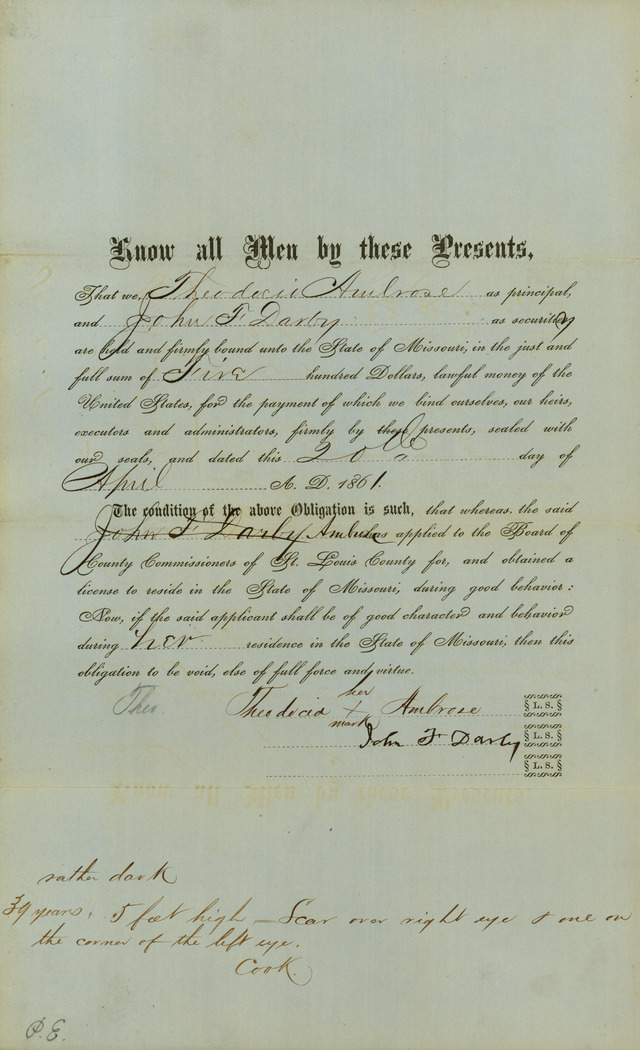 Know all Men by these Presents,
That we, Theodocia Ambrose as principal,
and John F Darby as securities
are held and firmly bound unto the State of Missouri, in the just and
full sum of Five hundred Dollars, lawful money of the
United States, for the payment of which we bind ourselves, our heirs,
executors and administrators, firmly by these presents, sealed with
our seals, and dated this 20th day of
April A. D. 1861.
The condition of the above Obligation is such, that whereas, the said
John F Darby Ambrose has applied to the Board of
County Commissioners of St. Louis County for, and obtained a
license to reside in the State of Missouri, during good behavior:
Now, if the said applicant shall be of good character and behavior
during her residence in the State of Missouri, then this
obligation to be void, else of full force and virtue.
her
Theo Theodocia X Ambrose § L. S. §
mark
John F Darby § L. S. §
§ L. S. §
rather dark
39 years, 5 feet high - Scar over right eye & one on
the corner of the left eye.
Cook.
P.E.